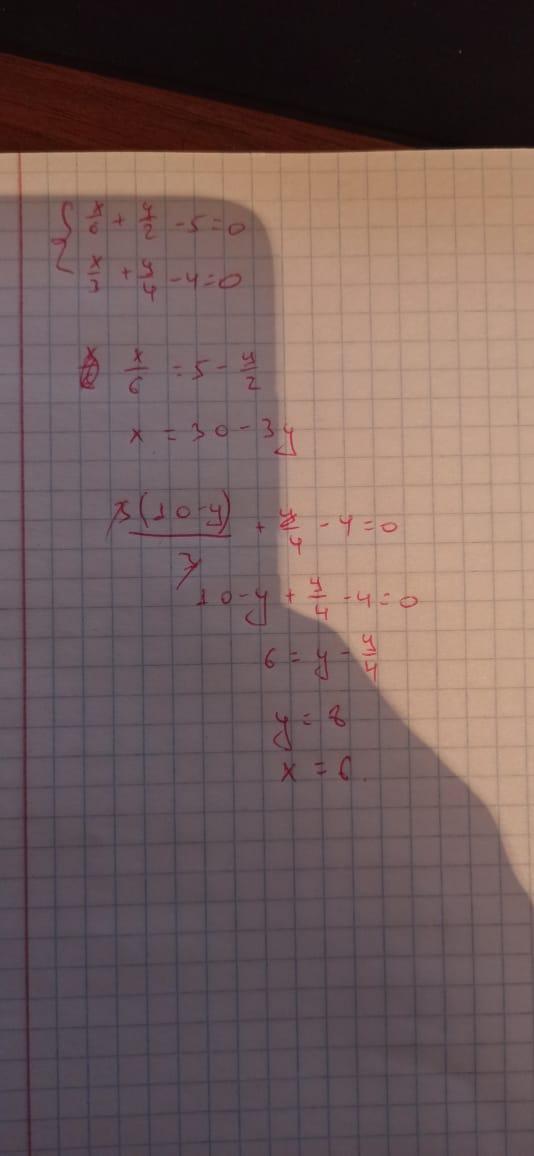 { x/6 + y/2 - 5 = 0
x/3 + y/4 - 4 = 0
x/6 = 5 - y/2
x = 30 - 3y
3(10-y)/3 + y/4 - 4 = 0
10 - y + y/4 - 4 = 0
6 = y - y/4
y = 8
x = 6.